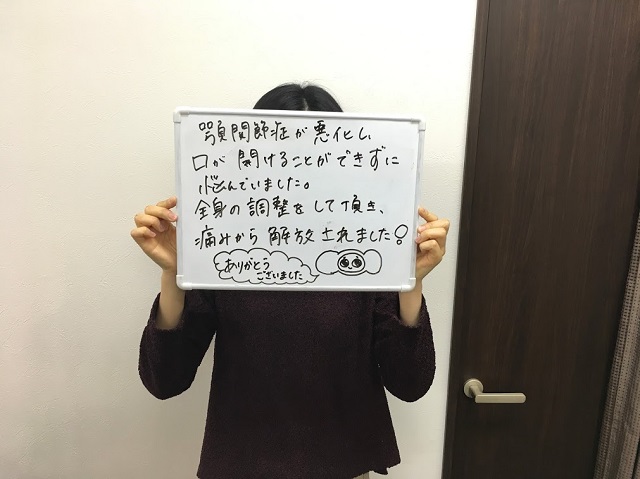 顎関節症が悪化し、
口が開けることができずに
悩んでいました。
全身の調整をして頂き、
痛みから解放されました!
ありがとう
ございました